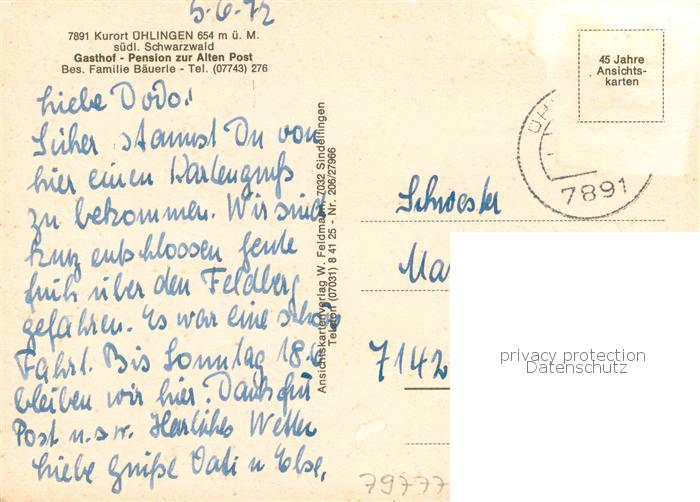 5-6-72
7891 Kurort ÜHLINGEN 654 m ü. M.
südl. Schwarzwald
Gasthof - Pension zur Alten Post
Bes. Familie Bäuerle - Tel. (07743) 276
45 Jahre
Ansichts-
karten
Liebe Dodo!
Sicher staunst Du von
hier einen Kartengruß
zu bekommen. Wir sind
kurz entschlossen heute
früh über den Feldberg
gefahren. Es war eine schöne
Fahrt. Bis Sonntag 18.6
bleiben wir hier. Dank gut
Post u.s.w. Herrliches Wetter
Liebe Grüße Vati u Else.
Ansichtskartenverlag W. Feldmann, 7032 Sindelfingen
Telefon (07031) 8 41 25 - Nr. 206/27966
ÜH
7891
Schwester
Ma
7142
privacy protection
Datenschutz
79777